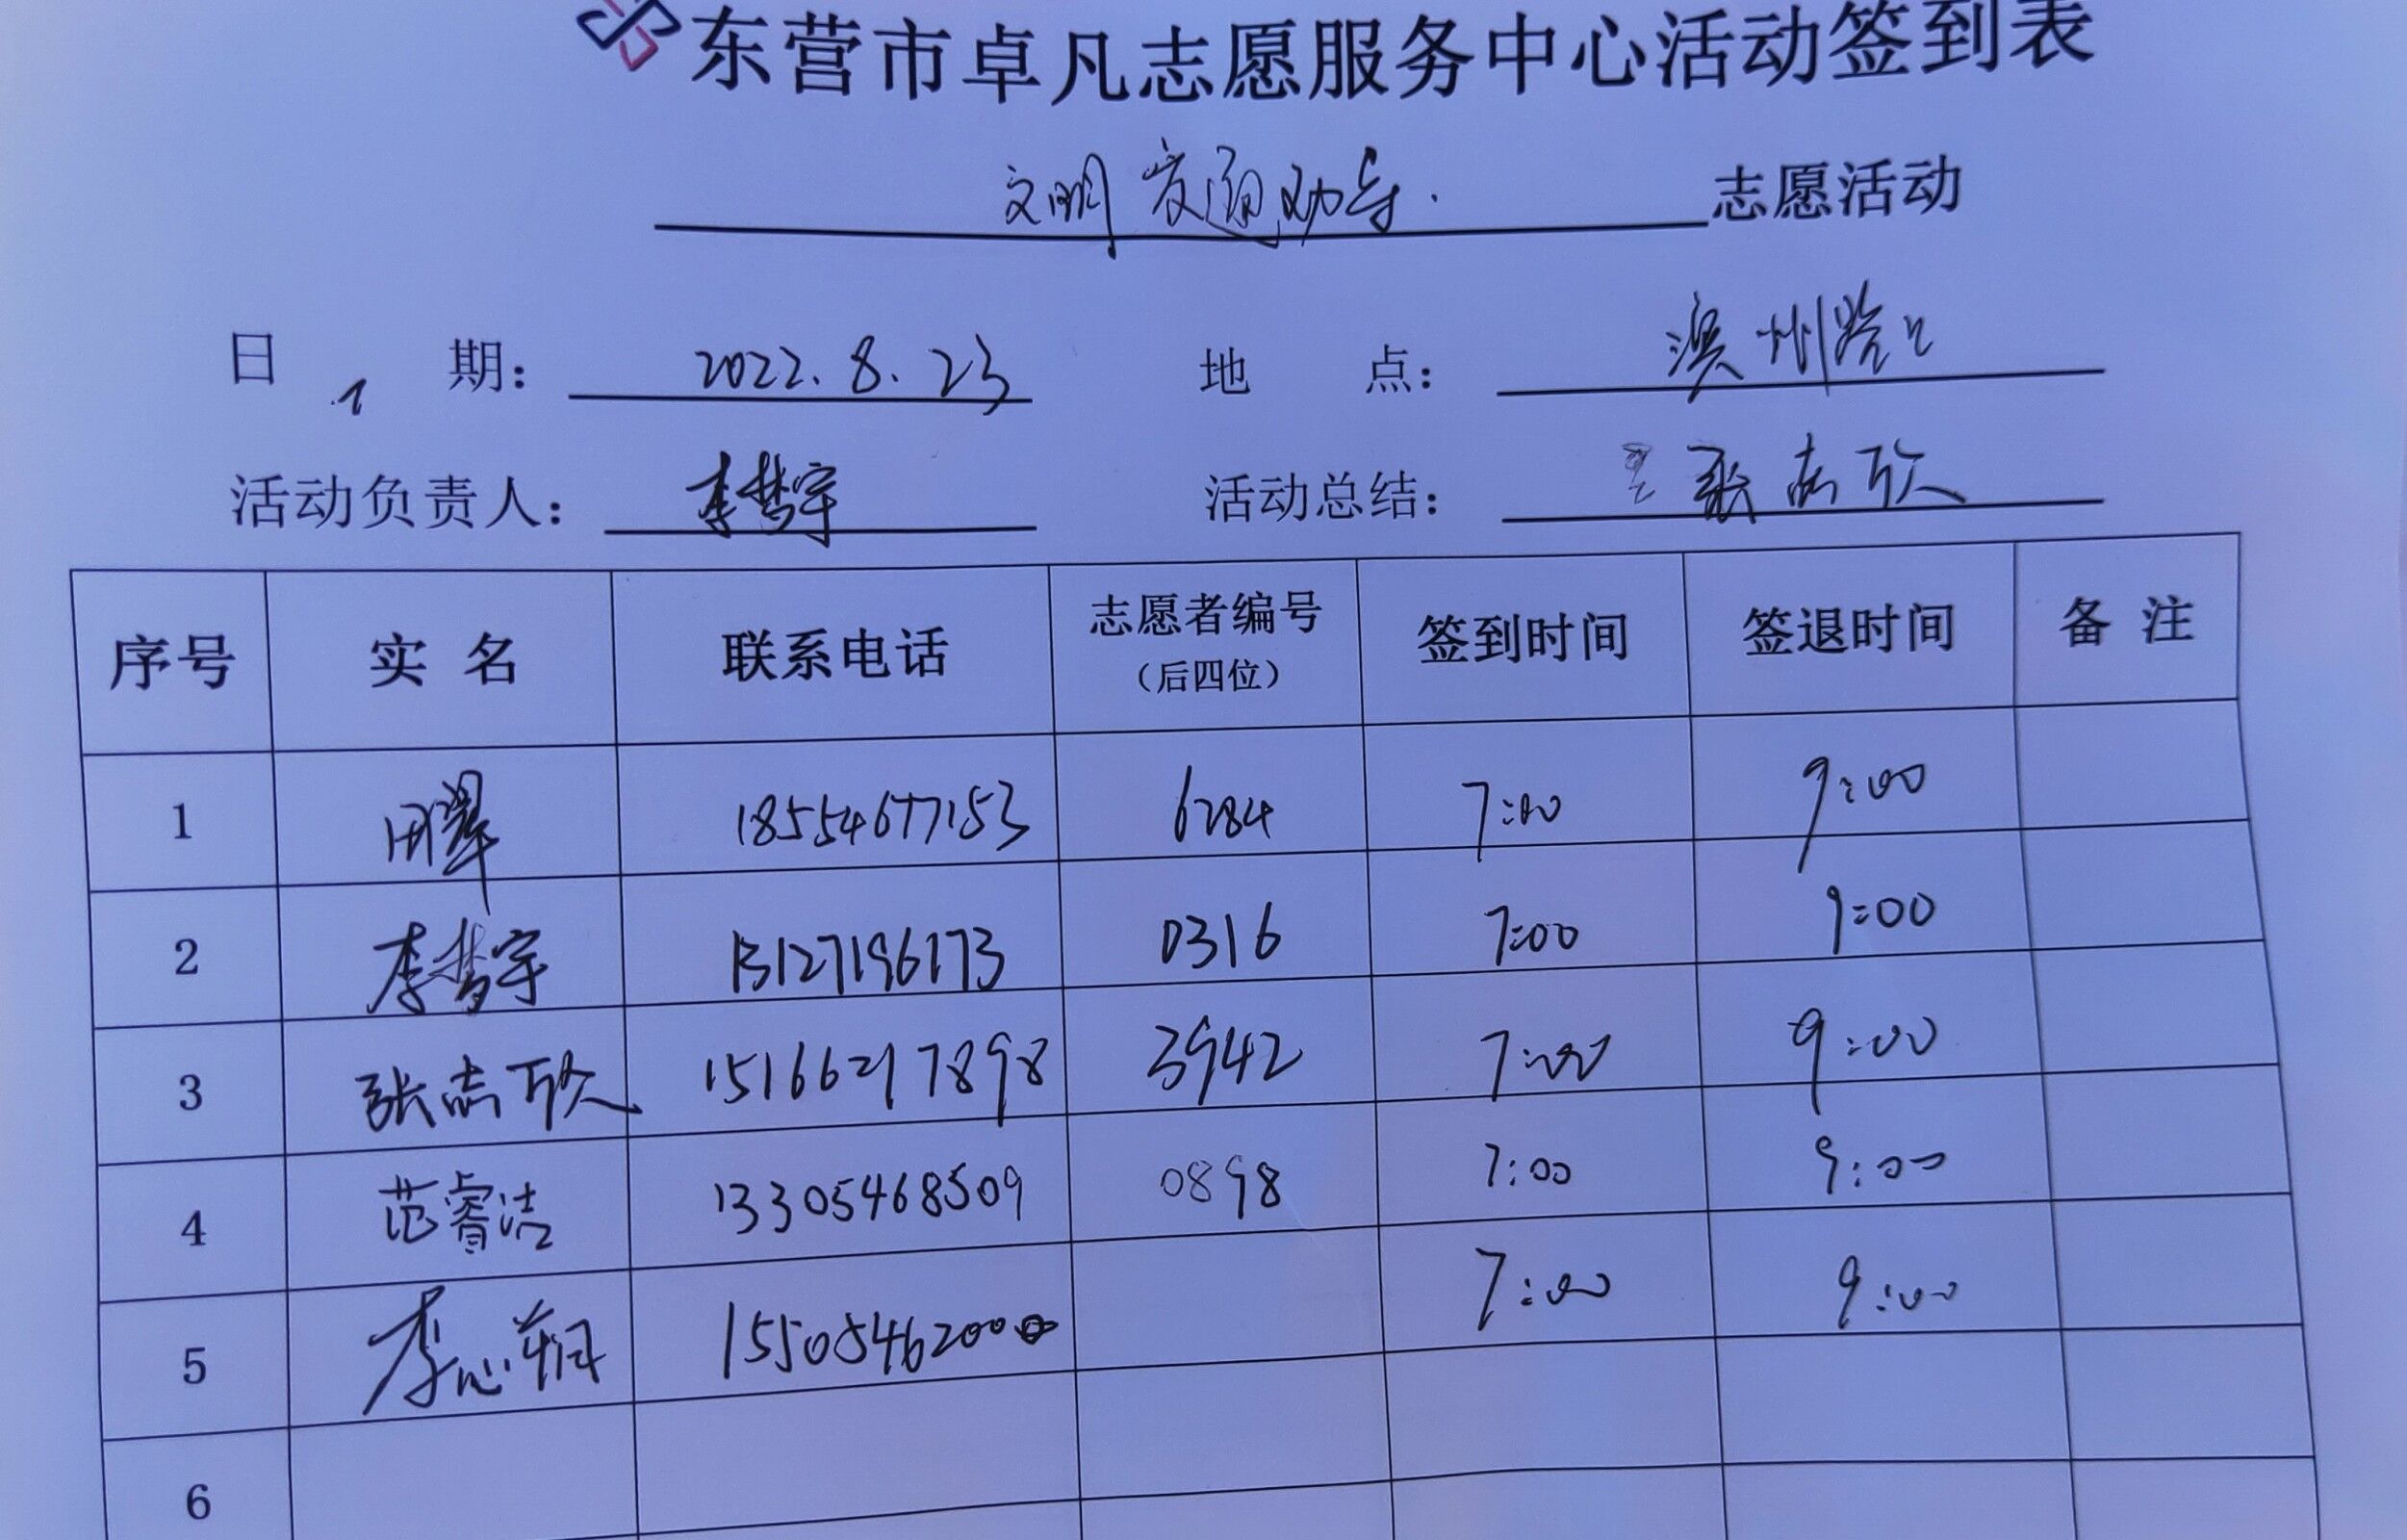 东营市卓凡志愿服务中心活动签到表
文明交通劝导. 志愿活动
日 期: 2022.8.23 地 点: 澳州路
活动负责人: 李梦宇 活动总结: 张志欣
序号 实 名 联系电话 志愿者编号 (后四位) 签到时间 签退时间 备 注
1 田翠 18554677153 6284 7:00 9:00
2 李梦宇 13127196173 0316 7:00 9:00
3 张志欣 15166217898 3942 7:00 9:00
4 范睿洁 13305468509 0898 7:00 9:00
5 李心 15505462000 7:00 9:00
6